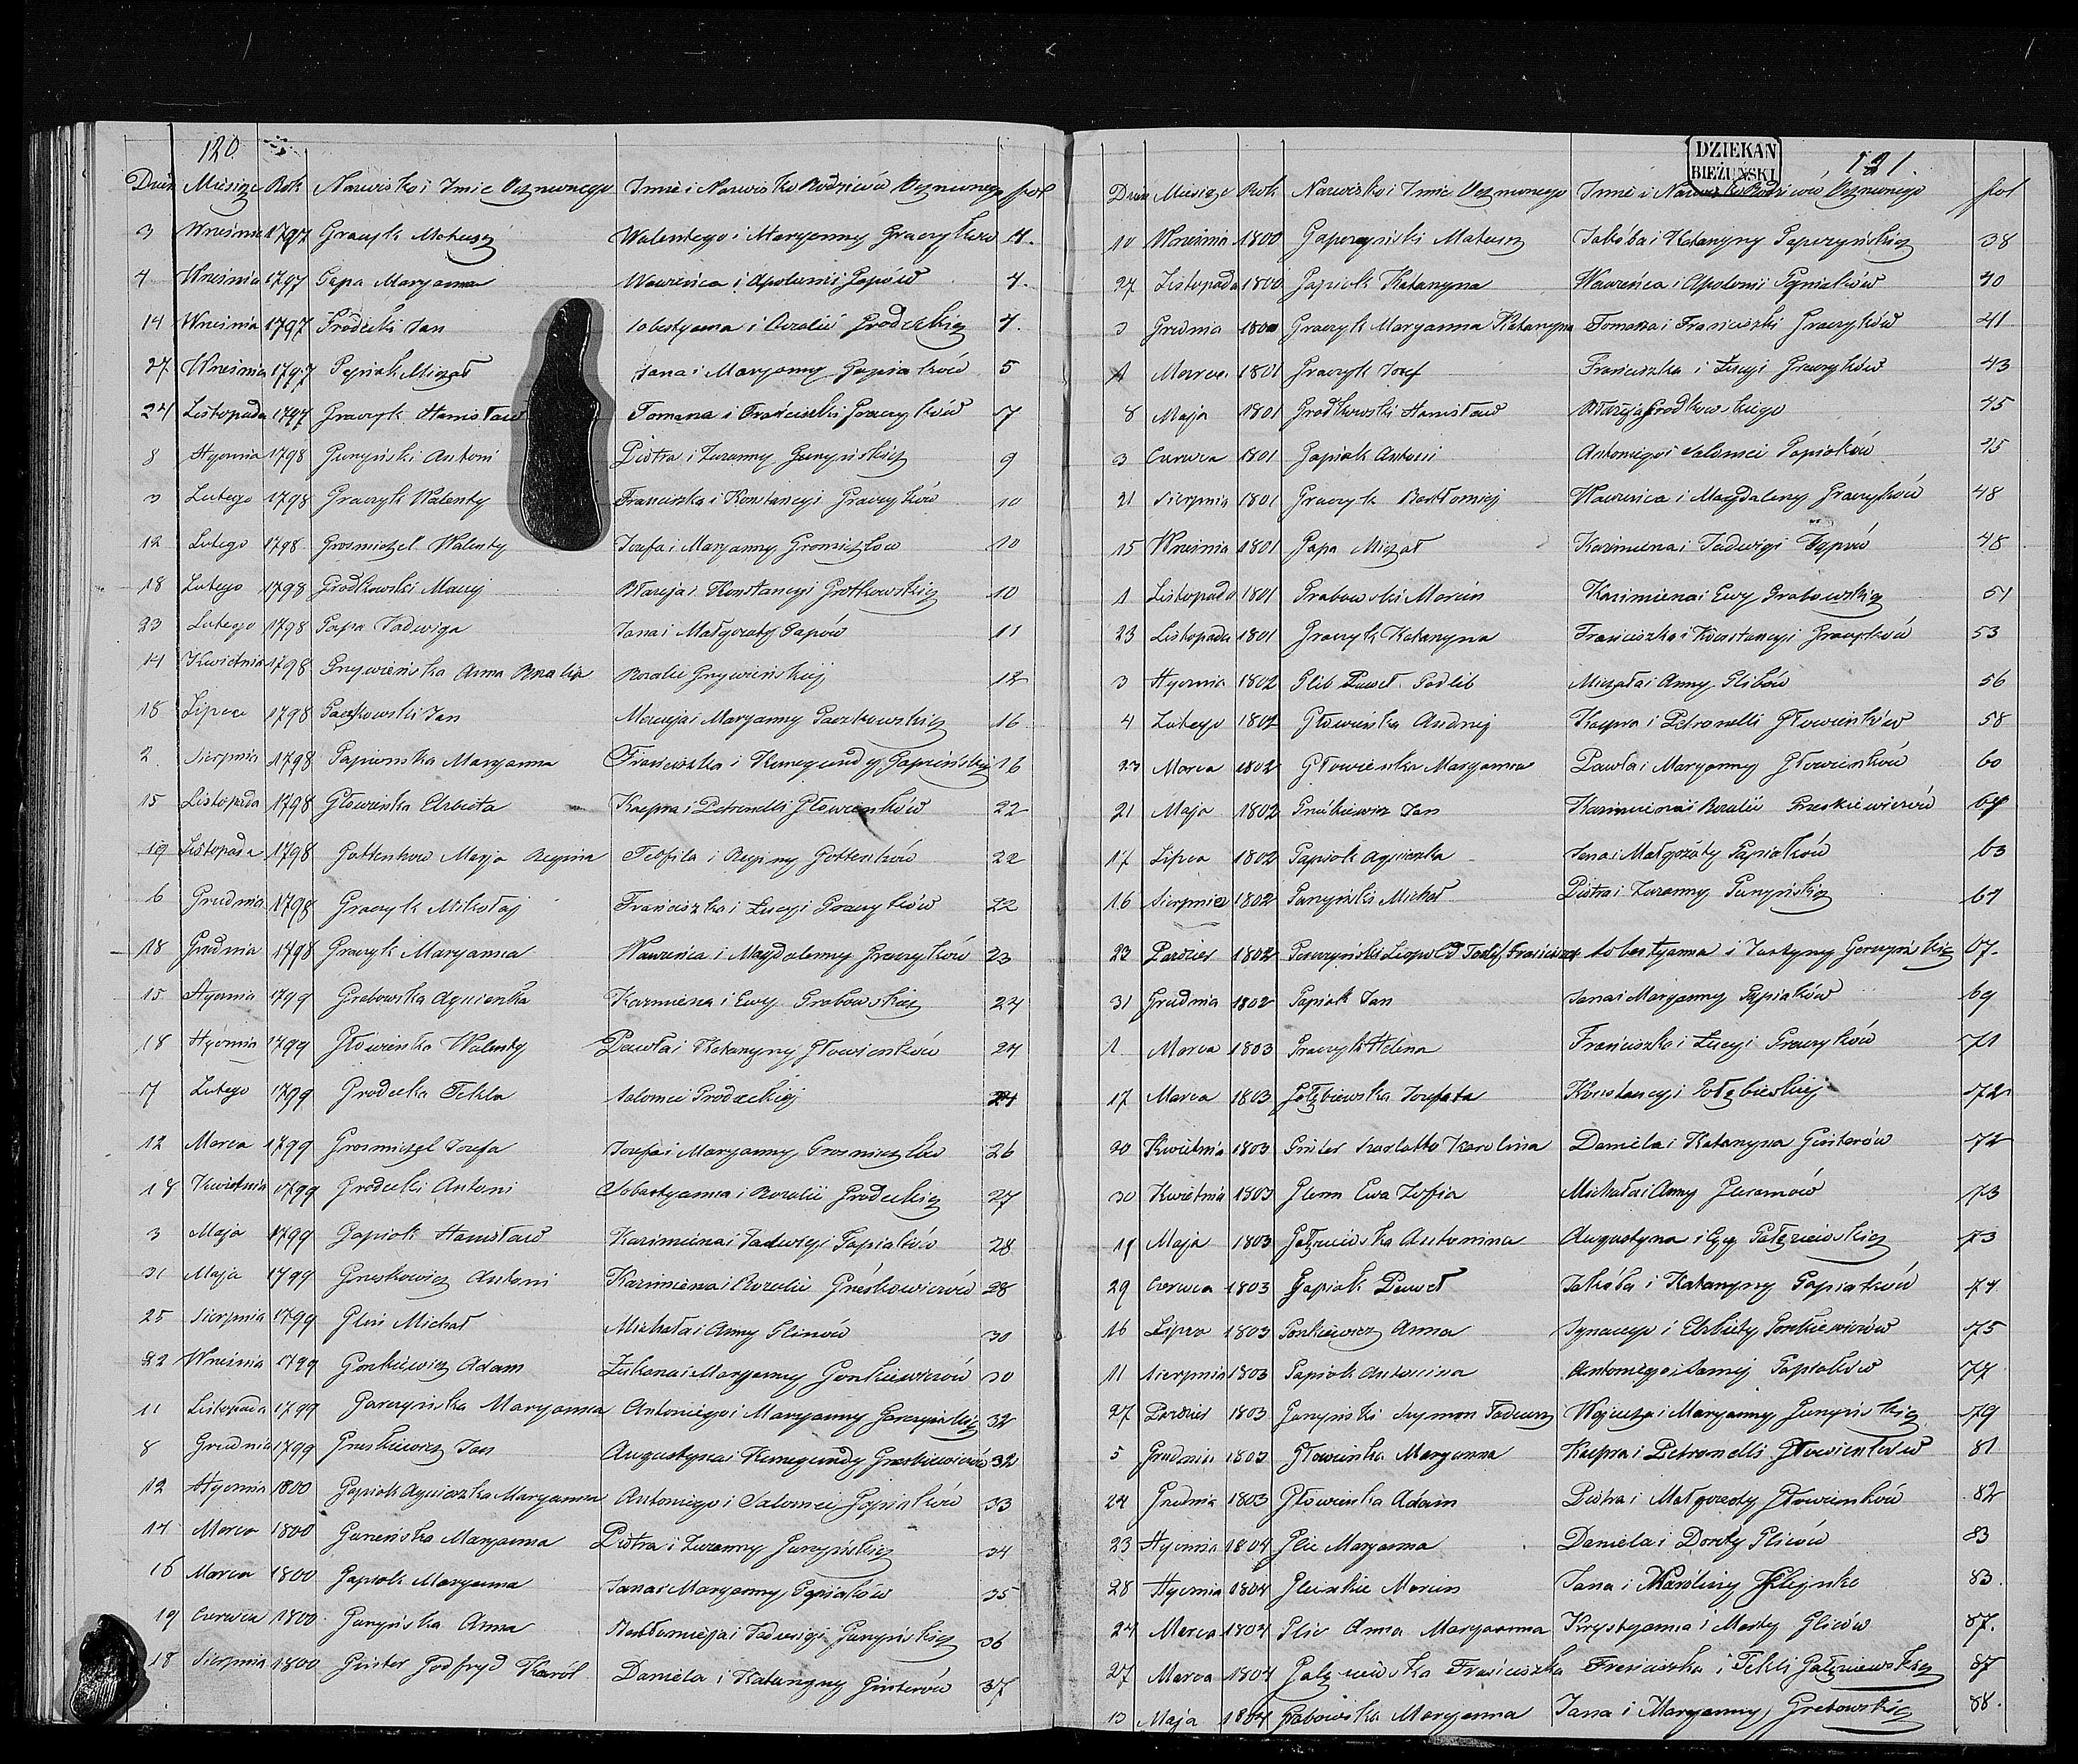 120
Dzień Miesiąc Rok Nazwisko i Imie Ocznonego Imie i Nazwisko Rodziców Ocznonego fol
3 Wrześnie 1797 Graczyk Mateusz Walentego i Maryanny Graczyków 4.
4 Wrześnie 1797 Gapa Maryanna Wawrzeńca i Apolonii Gapów 4.
14 Wrześnie 1797 Grodecki Jan Sobestyana i Rozalii Grodeckich 4.
27 Wrześnie 1797 Gapiak Michał Jana i Maryanny Gapiaków 5
24 Listopada 1797 Graczyk Stanisław Tomasza i Franciszki Graczyków 7
8 Stycznia 1798 Gurzyński Antoni Piotra i Zuzanny Gurzyńskich 9
3 Lutego 1798 Graczyk Walenty Franciszka i Konstancyi Graczyków 10
12 Lutego 1798 Grosmichel Walenty Jozefa i Maryanny 10
18 Lutego 1798 Grodkowski Maciej Błażeja i Konstancyi Grotkowskich 10
23 Lutego 1798 Gapa Jadwiga Jana i Małgorzaty Gapów 11
14 Kwietnia 1798 Grzywieńska Anna Rozalia Rozalii Grzywieńskiej 12
18 Lipca 1798 Gaczkowski Jan Macieja i Maryanny Gaczkowskich 16
2 Sierpnia 1798 Gapieńska Maryanna Franciszka i Kunegundy Gapieńskich 16
15 Listopada 1798 Głowienka Elzbieta Kacpra i Petronelli Głowienków 22
19 Listopada 1798 Marja Regina Teofila i Reginy 22
6 Grudnia 1798 Graczyk Mikołaj Franciszka i Łucyi Graczyków 22
18 Grudnia 1798 Graczyk Maryanna Wawrzeńca i Magdaleny Graczyków 23
15 Stycznia 1799 Grabowska Agnieszka Kazimierza i Ewy Grabowskich 24
18 Stycznia 1799 Głowienka Walenty Pawła i Katarzyny Głowienków 24
17 Lutego 1799 Grodecka Tekla Salomei Grodeckiej 24
12 Marca 1799 Grosmichel Jozefa Jozefa i Maryanny 26
18 Kwietnia 1799 Grodecki Antoni Sobestyana i Rozalii Grodeckich 27
3 Maja 1799 Gapiak Stanisław Kazimierza i Jadwigi Gapiaków 28
31 Maja 1799 Greskowicz Antoni Kazimierza i Rozalii Greskowiczów 28
25 Sierpnia 1799 Glin Michał Michała i Anny Glinów 30
22 Wrześnie 1799 Gonkiewicz Adam Łukasza i Maryanny Gonkiewiczów 30
11 Listopada 1799 Garczyńska Maryanna Antoniego i Maryanny Garczyńskich 32
8 Grudnia 1799 Greskiewicz Jan Augustyna i Kunegundy Greskiewiczów 32
12 Stycznia 1800 Gapiak Agnieszka Maryanna Antoniego i Salomei Gapiaków 33
14 Marca 1800 Gurzeńska Maryanna Piotra i Zuzanny Gurzyńskich 34
16 Marca 1800 Gapiak Maryanna Jana i Maryanny Gapiaków 35
19 Czerwca 1800 Gurzyńska Anna Bartłomieja i Jadwigi Gurzyńskich 36
18 Sierpnia 1800 Ginter Godfryd Karol Daniela i Katarzyny Ginterów 37
DZIEKAN
BIEŻUŃSKI
121.
Dzień Miesiąc Rok Nazwisko i Imie Ocznonego Imie i Nazwisko Rodziców Ocznonego fol
10 Wrześnie 1800 Gapczyński Mateusz Jakóba i Katarzyny Gapczyńskich 38
27 Listopada 1800 Gapiak Katarzyna Wawrzeńca i Apolonii Gapiaków 40
3 Grudnia 1800 Graczyk Maryanna Katarzyna Tomasza i Franciszki Graczyków 41
1 Marca 1801 Graczyk Jozef Franciszka i Łucyi Graczyków 43
8 Maja 1801 Grodkowski Stanisław Błażeja Grodkowskiego 45
3 Czerwca 1801 Gapiak Antoni Antoniego i Salomei Gapiaków 45
21 Sierpnia 1801 Graczyk Bartłomiej Wawrzeńca i Magdaleny Graczyków 48
15 Wrześnie 1801 Gapa Michał Kazimierza i Jadwigi Gapów 48
1 Listopada 1801 Grabowski Marcin Kazimierza i Ewy Grabowskich 51
23 Listopada 1801 Graczyk Katarzyna Franciszka i Konstancyi Graczyków 53
3 Stycznia 1802 Glib Paweł Michała i Anny Glibów 56
4 Lutego 1802 Głowienka Andrzej Kacpra i Petronelli Głowienków 58
23 Marca 1802 Głowienka Maryanna Pawła i Maryanny Głowienków 60
21 Maja 1802 Jan Kazimierza i Rozalii Greskiewiczów
17 Lipca 1802 Gapiak Agnieszka Jana i Małgorzaty Gapiaków 63
16 Sierpnia 1802 Gurzyński Michał Piotra i Zuzanny Gurzyńskich 64
23 Paździer 1802 Garczyński Leopold Teofil Franciszek Sobestyana i Justyny Garczyńskich 67.
31 Grudnia 1802 Gapiak Jan Jana i Maryanny Gapiaków 69
1 Marca 1803 Graczyk Helena Franciszka i Łucyi Graczyków 71
17 Marca 1803 Gołębiewska Jozefata Konstancyi Gołębieskiej 72
20 Kwietnia 1803 Ginter Karolina Daniela i Katarzyna Ginterów 72
30 Kwietnia 1803 Ewa Zofia Michała i Anny 73
19 Maja 1803 Gałęziewska Antonina Augustyna i Ewy Gałęziewskich 73
29 Czerwca 1803 Gapiak Paweł Jakóba i Katarzyny Gapiaków 74
16 Lipca 1803 Gonkiewicz Anna Ignacego i Elzbiety Gonkiewiczów 75
11 Sierpnia 1803 Gapiak Antonina Antoniego i Gapiaków 77
27 Paździer 1803 Gurzyński Szymon Tadeusz Wojciecha i Maryanny Gurzyńskich 79
5 Grudnia 1803 Głowienka Maryanna Kacpra i Petronelli Głowienków 81
24 Grudnia 1803 Głowienka Adam Piotra i Małgorzaty Głowienków 82
23 Stycznia 1804 Glic Maryanna Daniela i Doroty Gliców 83
28 Stycznia 1804 Marcin Jana i Karoliny 83.
24 Marca 1804 Glic Anna Maryanna Krystyana i Marty Gliców 87.
27 Marca 1804 Gałęziewska Franciszka Franciszka i Tekli Gałęziewskich 87
13 Maja 1804 Grabowska Maryanna Jana i Maryanny Grabowskich 88.